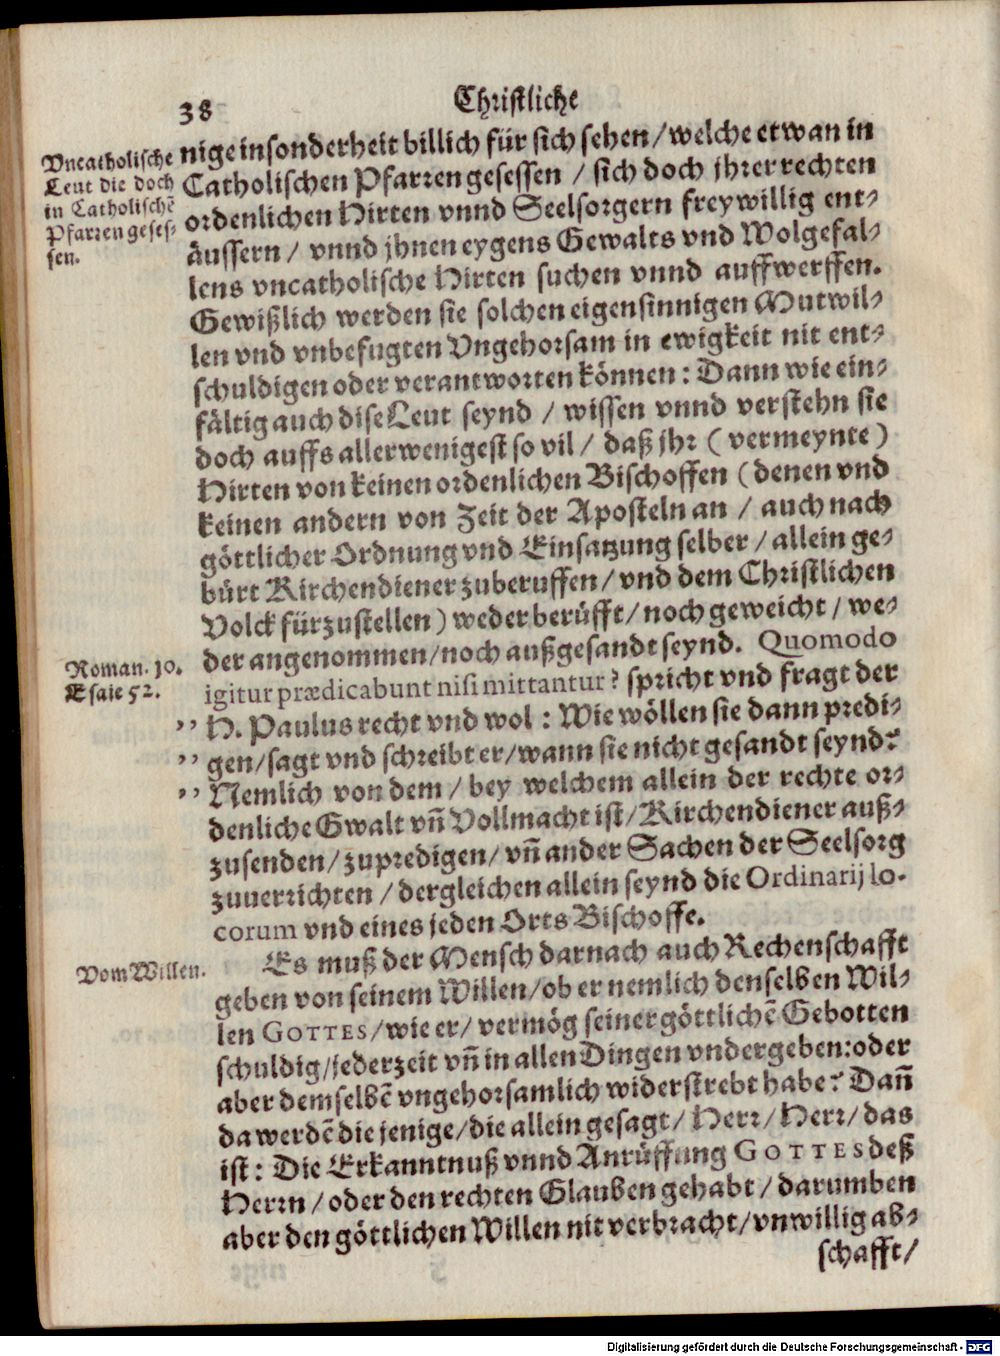 38 Christliche
Vncatholische
Leut die doch
in Catholischẽ
Pfarren geses-
sen.
nige insonderheit billich für sich sehen / welche etwan in
Catholischen Pfarren gesessen / sich doch jhrer rechten
ordenlichen Hirten vnnd Seelsorgern freywillig ent-
äussern / vnnd jhnen eygens Gewalts vnd Wolgefal-
lens vncatholische Hirten suchen vnnd auffwerffen.
Gewißlich werden sie solchen eigensinnigen Mutwil-
len vnd vnbefugten Vngehorsam in ewigkeit nit ent-
schuldigen oder verantworten können: Dann wie ein-
fältig auch dise Leut seynd / wissen vnnd verstehn sie
doch auffs allerwenigest so vil / daß jhr ( vermeynte )
Hirten von keinen ordenlichen Bischoffen (denen vnd
keinen andern von Zeit der Aposteln an / auch nach
göttlicher Ordnung vnd Einsatzung selber / allein ge-
bürt Kirchendiener zuberuffen / vnd dem Christlichen
Volck fürzustellen) weder berüfft / noch geweicht / we-
der angenommen / noch außgesandt seynd. Quomodo
Roman. 10.
Esaie 52.
igitur prædicabunt nisi mittantur? spricht vnd fragt der
" H. Paulus recht vnd wol : Wie wöllen sie dann predi-
" gen / sagt vnd schreibt er / wann sie nicht gesandt seynd?
" Nemlich von dem / bey welchem allein der rechte or-
denliche Gwalt vñ Vollmacht ist / Kirchendiener auß-
zusenden / zupredigen / vñ ander Sachen der Seelsorg
zuuerrichten / dergleichen allein seynd die Ordinarij lo-
corum vnd eines jeden Orts Bischoffe.
Vom Willen.
Es muß der Mensch darnach auch Rechenschafft
geben von seinem Willen / ob er nemlich denselben Wil-
len GOTTES / wie er / vermög seiner göttlichẽ Gebotten
schuldig / jederzeit vñ in allen Dingen vndergeben: oder
aber demselbẽ vngehorsamlich widerstrebt habe? Dañ
da werdẽ die jenige / die allein gesagt / Herr / Herr / das
ist : Die Erkanntnuß vnnd Anrüffung GOTTES deß
Herrn / oder den rechten Glauben gehabt / darumben
aber den göttlichen Willen nit verbracht / vnwillig ab-
schafft /
Digitalisierung gefördert durch die Deutsche Forschungsgemeinschaft - DFG